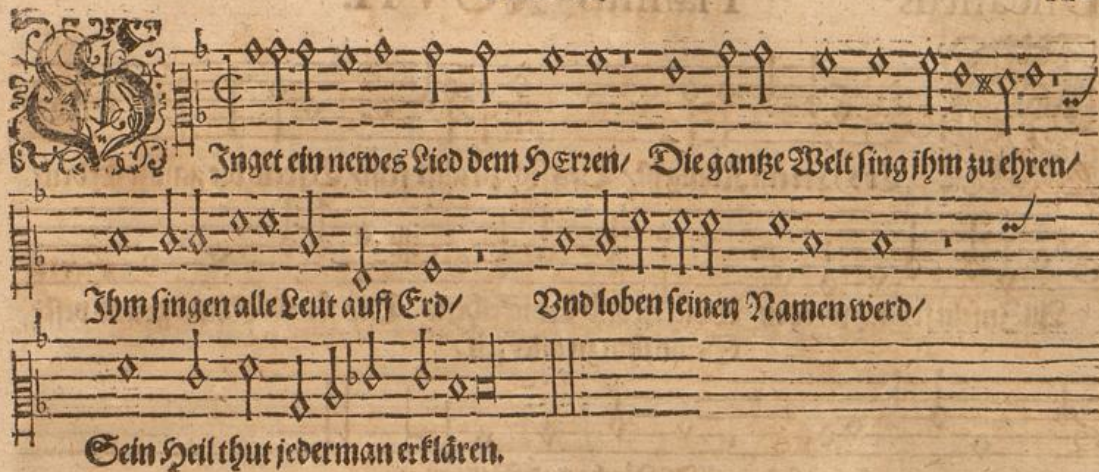 SInget ein newes Lied dem HErren/ Die gantze Welt sing jhm zu ehren/
Jhm singen alle Leut auff Erd/ Vnd loben seinen Namen werd/
Sein Heil thut jederman erklären.